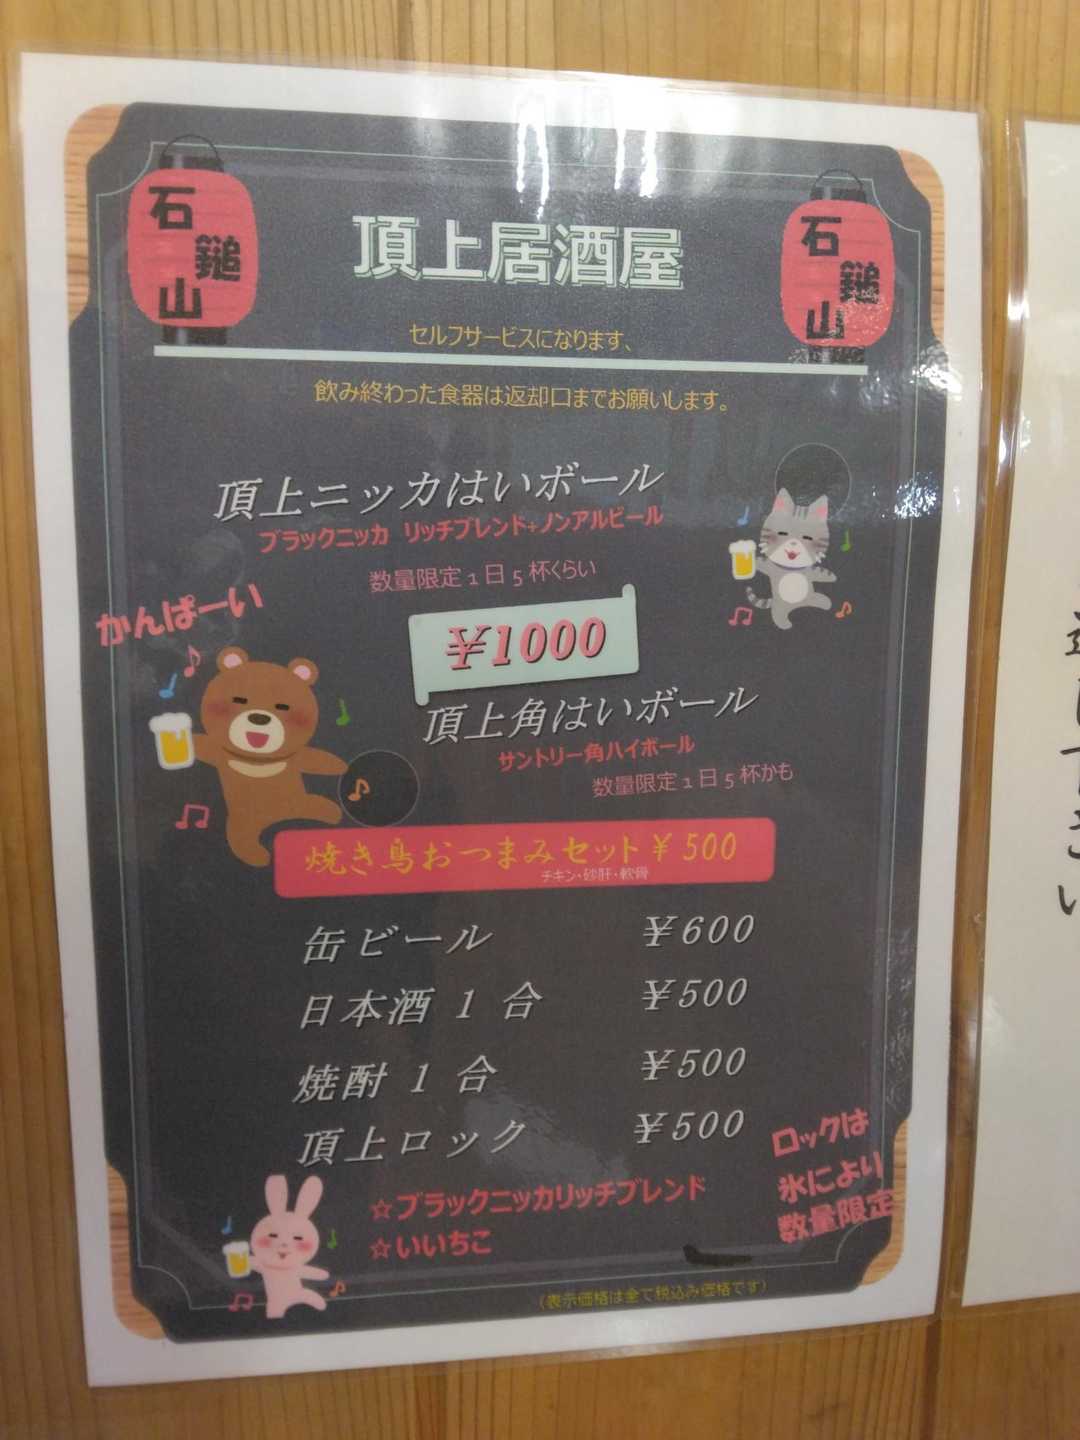 石鎚山
石鎚山
頂上居酒屋
セルフサービスになります、
飲み終わった食器は返却口までお願いします。
頂上ニッカはいボール
ブラックニッカ リッチブレンド+ノンアルビール
数量限定1日5杯くらい
かんぱーい
¥1000
頂上角はいボール
サントリー角ハイボール
数量限定1日5杯かも
焼き鳥おつまみセット¥500
チキン・砂肝・軟骨
缶ビール ¥600
日本酒1合 ¥500
焼酎1合 ¥500
頂上ロック ¥500
ロックは
氷により
数量限定
☆ブラックニッカリッチブレンド
☆いいちこ
(表示価格は全て税込み価格です)